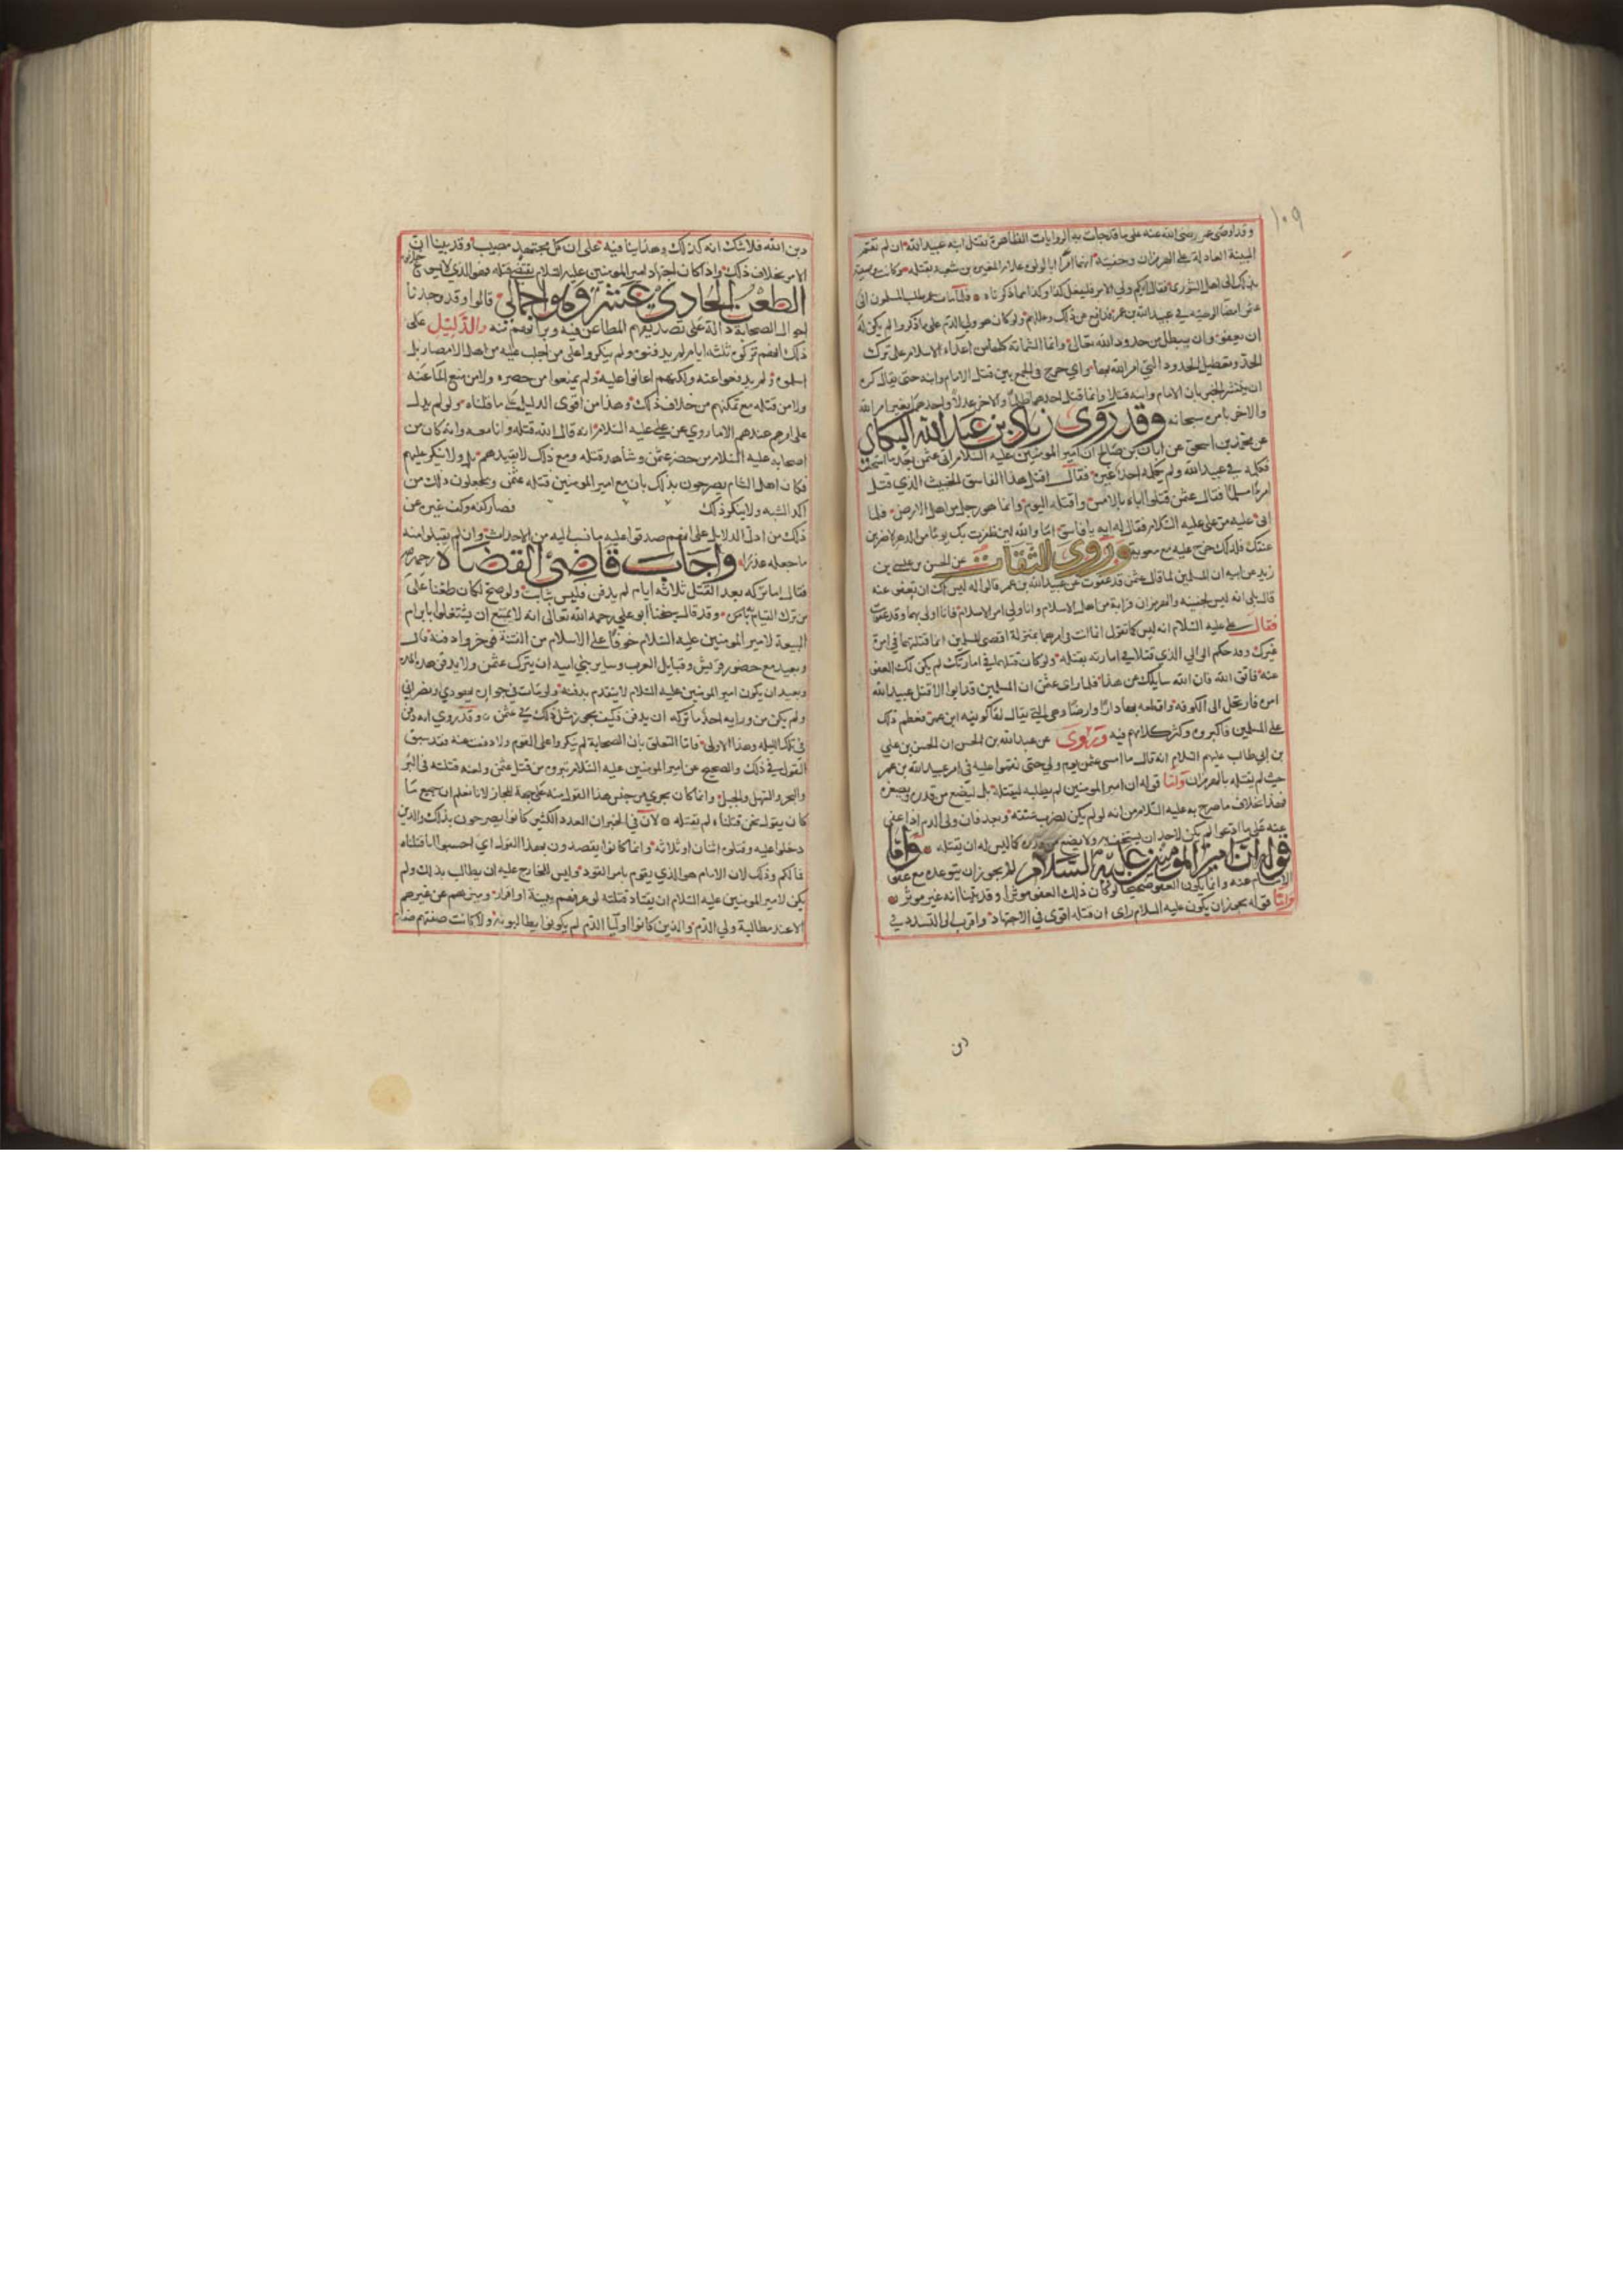 ١٠٩
وقد اوصى عمر رضي الله عنه على ما قد جات به الروايات الظاهرة بقتل ابنه عبيد الله ان لم تقم
البينة العادلة على الهرمزان وجفينة انهما امرا ابا لولوة غلام المغيرة بن شعبة بقتله وكانت وصيته
بذلك الى اهل الشورى فقال ايكم ولي الامر فليفعل كذا وكذا مما ذكرناه فلما مات عمر طلب المسلمون الى
عثمن امضا الوصية في عبيد الله بن عمر فدافع عن ذلك وعللهم ولو كان هو ولي الدم على ما ذكروا لم يكن له
ان يعفو وان يبطل من حدود الله تعالى وانما الشماتة كلها من اعداء الاسلام على ترك
الحد وتعطيل الحدود التي امر الله بها واي حرج في الجمع بين قتل الامام وابنه حتى يقال كره
ان ينتشر الخبر بان الامام وابنه قتلا وانما قتل احدهما ظلما والاخر عدلا واحدهما بغير امر الله
والاخر بامره سبحانه وقد روى زياد بن عبد الله البكاي
عن محمد بن اسحق عن ابان بن صالح ان امير المومنين عليه السلام اتى عثمن بعد ما استخلف
فكلمه في عبيد الله ولم يكلمه احد غيره فقال اقتل هذا الفاسق الخبيث الذي قتل
امرءا مسلما فقال عثمن قتلوا اباه بالامس واقتله اليوم وانما هو رجل من اهل الارض فلما
ابى عليه مر على عليه السلام فقال له ايه يا فاسق اما والله لين ظفرت بك يوما من الدهر لاضربن
عنقك فلذلك خرج عليه مع معوية وروى الثقات عن الحسن بن عيسى بن
زيد عن ابيه ان المسلمين لما قال عثمن قد عفوت عن عبيد الله بن عمر قالوا له ليس لك ان تعفو عنه
قال بلى انه ليس لجفينه والهرمزان قرابة من اهل الاسلام وانا ولي امر الاسلام فانا اولى بهما وقد عفوت
فقال على عليه السلام انه ليس كما تقول انما انت في امرهما بمنزلة اقصى المسلمين انما قتلهما في امرة
غيرك وقد حكم الوالي الذي قتلا في امارته بقتله ولو كان قتلهما في امارتك لم يكن لك العفو
عنه فاتق الله فان الله سايلك عن هذا فلما راى عثمن ان المسلمين قد ابوا الا قتل عبيد الله
امره فارتحل الى الكوفه واقطعه بها دارا وارضا وهي التي يقال لها كويفه ابن عمر فعظم ذلك
على المسلمين واكبروه وكثر كلامهم فيه وروى عن عبد الله بن الحسن ان الحسن بن علي
بن ابي طالب عليهم السلام انه قال ما امسى عثمن يوم ولي حتى نقموا عليه في امر عبيد الله بن عمر
حيث لم يقتله بالهرمزان واما قوله ان امير المومنين لم يطلبه ليقتله بل ليضع من قدره ويصغره
فهذا خلاف ما صرح به عليه السلام من انه لو لم يكن لضرب عنقه وبعد فان ولي الدم اذا عفى
عنه على ما ادعوا لم يكن لاحد ان يستخف به ولا يضع من قدره كما ليس له ان يقتله واما
قوله ان امير المومنين عليه السلام لا يجوز ان يتوعده مع عفو
الامام عنه وانما يكون العفو صحيحا لو كان ذلك العفو موثرا وقد بينا انه غير موثر
واما قوله يجوز ان يكون عليه السلام راى ان قتله اقوى في الاجتهاد واقرب الى التشدد في
دين
دين الله فلا شك انه كذلك وهذا بنا فيه على ان كل مجتهد مصيب وقد بينا ان
الامر بخلاف ذلك واذا كان اجتهاد امير المومنين عليه السلام يقتضي قتله فهو الذي لا يسوغ خلافه
الطعن الحادي عشر وهو اجمالي قالوا وقد وجدنا
احوال الصحابة دالة على تصديقهم المطاعن فيه وبراتهم منه والدليل على
ذلك انهم تركوه ثلثه ايام لم يدفنوه ولم ينكروا على من اجلب عليه من اهل الامصار بل
اسلموه ولم يدفعوا عنه ولكنهم اعانوا عليه ولم يمنعوا من حصره ولا من منع الماء عنه
ولا من قتله مع تمكنهم من خلاف ذلك وهذا من اقوى الدليل على ما قلناه ولو لم يدل
على امره عندهم الا ما روي عن علي عليه السلام انه قال الله قتله وانا معه وانه كان من
اصحابه عليه السلام من حضر عثمن وشاهد قتله ومع ذلك لا يقيدهم بل ولا ينكر عليهم
فكان اهل الشام يصرحون بذلك بان مع امير المومنين قتله عثمن ويجعلون ذلك من
اكد الشبه ولا ينكر ذلك فصار كفه وكف غيره عن
ذلك من ادل الدلايل على انهم صدقوا عليه ما نسب اليه من الاحداث وان لم يقبلوا منه
ما جعله عذرا واجاب قاضي القضاة رحمه الله
فقال اما تركه بعد القتل ثلاثة ايام لم يدفن فليس بثابت ولو صح لكان طعنا على
من ترك القيام بامره وقد قال شيخنا ابو علي رحمه الله تعالى انه لا يمتنع ان يشتغلوا بابرام
البيعة لامير المومنين عليه السلام خوفا على الاسلام من الفتنة فوخروا دفنه قال
وبعيد مع حضور قريش وقبايل العرب وساير بني اميه ان يترك عثمن ولا يدفن هذه المدة
وبعيد ان يكون امير المومنين عليه السلام لا يتقدم بدفنه ولو مات في جواره يهودي او نصراني
ولم يكن من ورايه احد ما تركه ان يدفن فكيف يجوز مثل ذلك في عثمن وقد روي انه دفن
في تلك الليله وهذا الاولى فاما التعلق بان الصحابة لم ينكروا على القوم ولا دفعت عنه فقد سبق
القول في ذلك والصحيح عن امير المومنين عليه السلام تبروه من قتل عثمن ولعنه قتلته في البر
والبحر والسهل والجبل وانما كان يجرى من جنس هذا القول منه على جهة المجاز لانا نعلم ان جميع من
كان يقول نحن قتلناه لم يقتله لان في الخبر ان العدد الكثير كانوا يصرحون بذلك والذين
دخلوا عليه وقتلوه اثنان او ثلاثه وانما كانوا يقصدون بهذا القول اي احسبوا انا قتلناه
فما لكم وذلك لان الامام هو الذي يقوم بامر القود وليس للخارج عليه ان يطالب بذلك ولم
يكن لامير المومنين عليه السلام ان يقتاد قتلته لو عرفهم ببينة او اقرار وميزهم عن غيرهم
الا عند مطالبة ولي الدم والذين كانوا اوليا الدم لم يكونوا يطالبونه ولا كانت صفتهم صفة